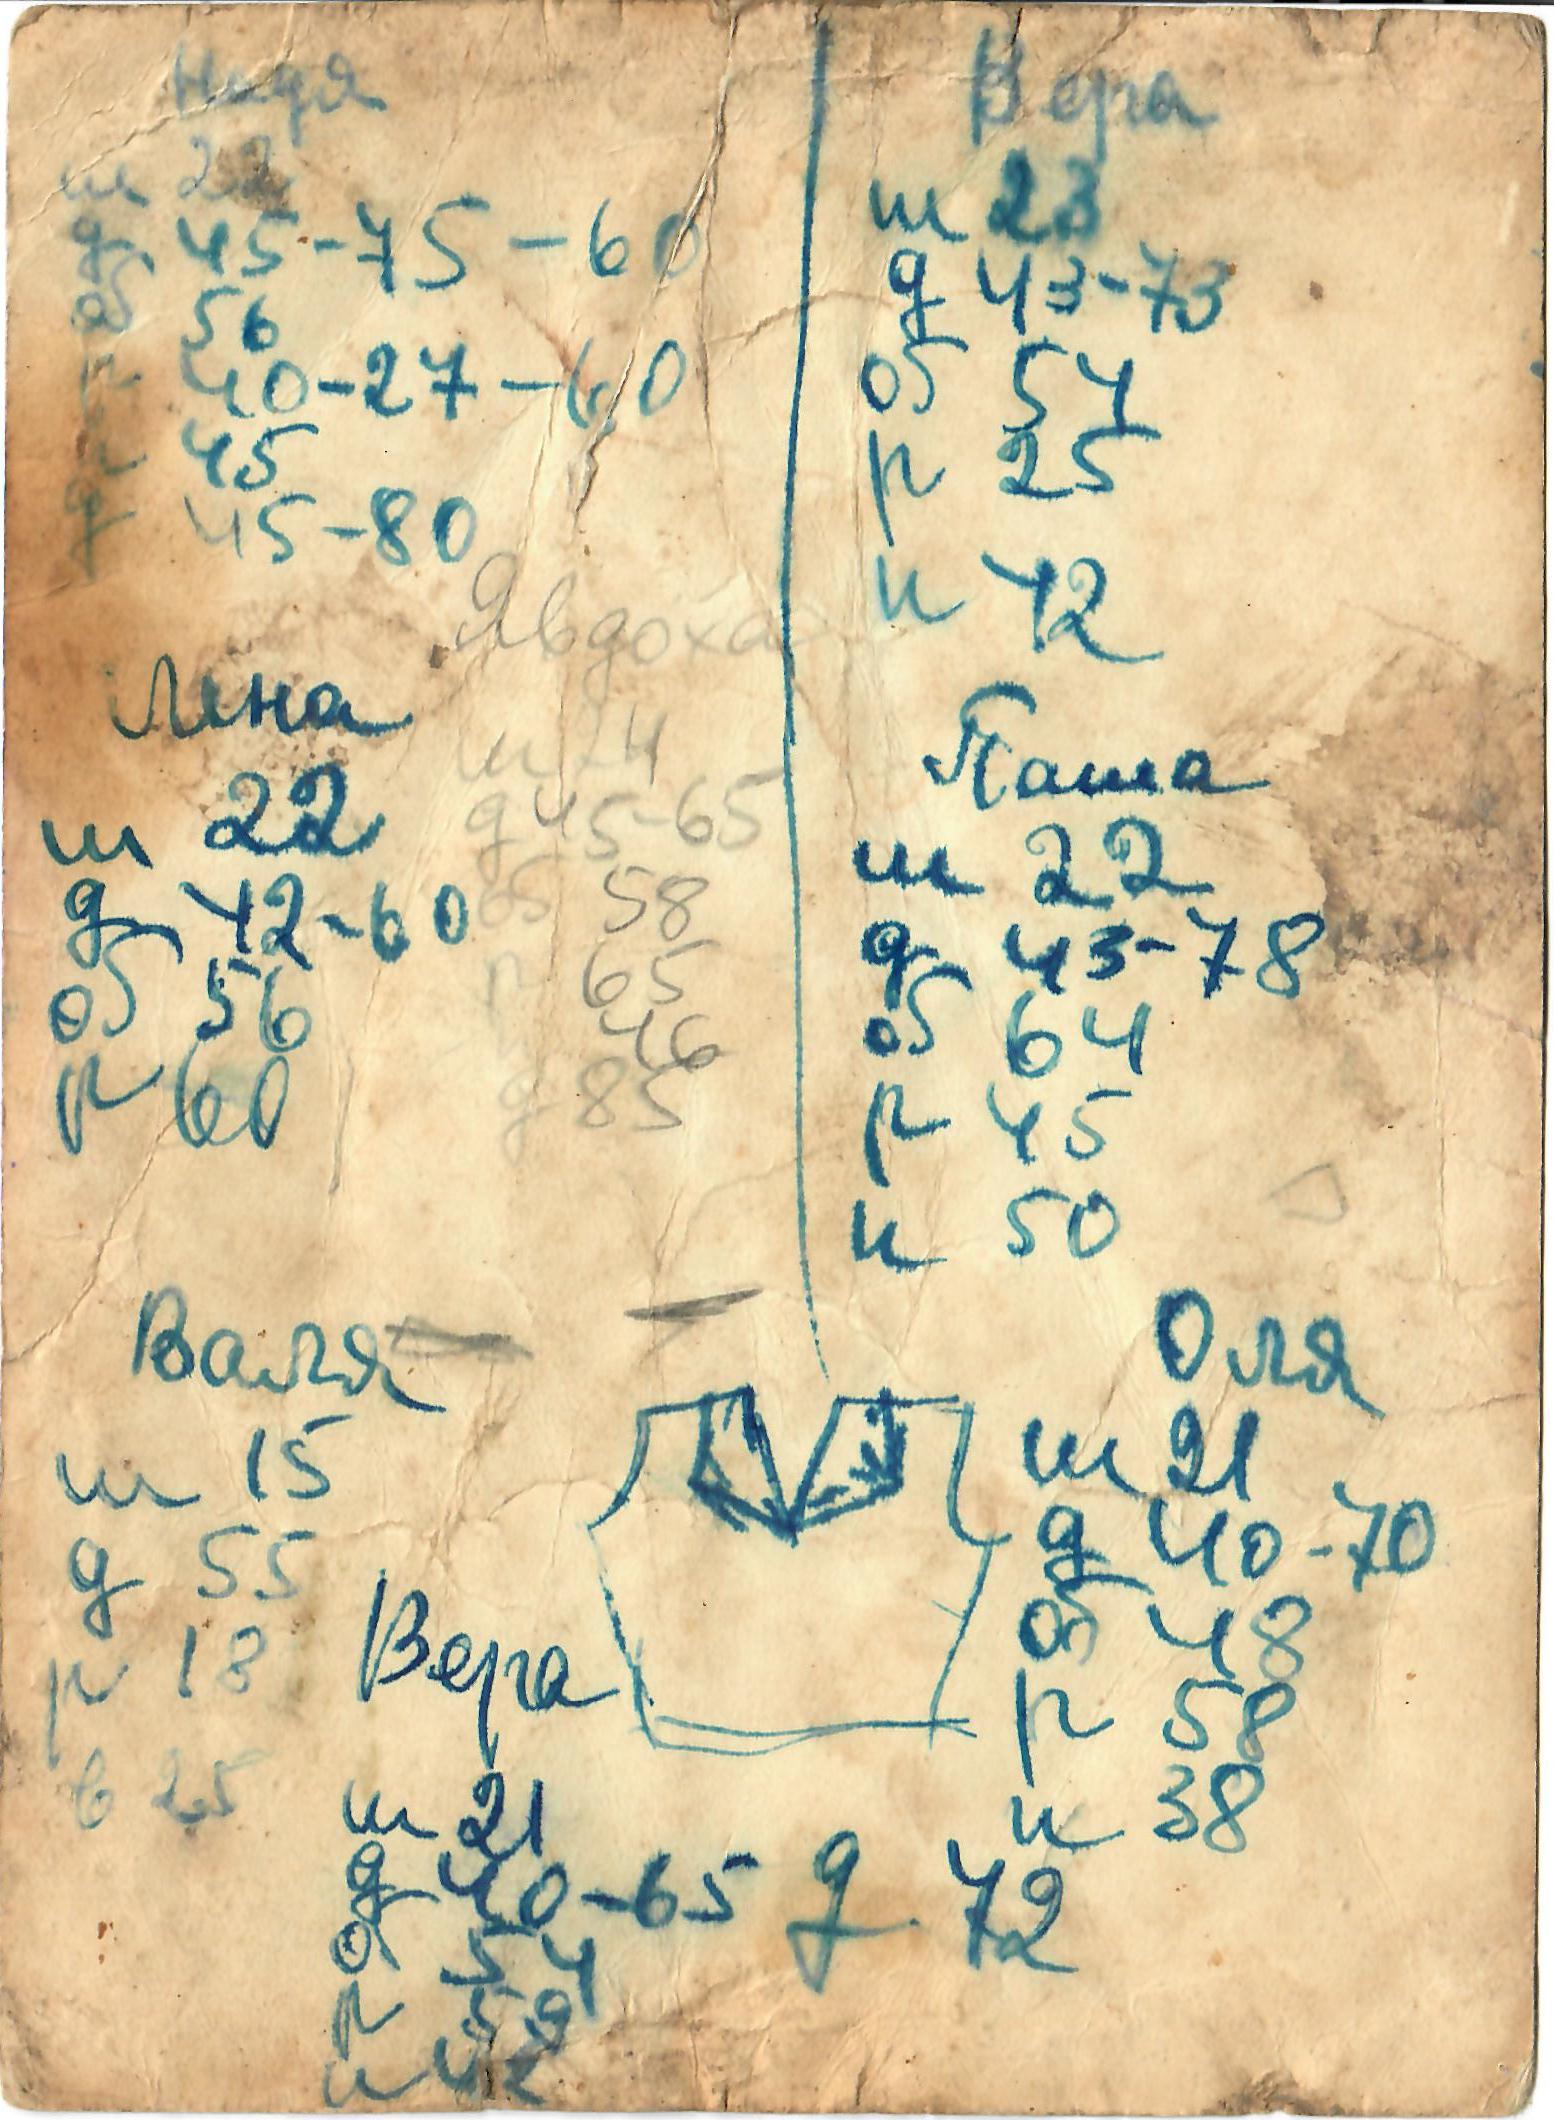 Надя
ш 22
д 45-75-60
об 56
р 40-27-60
н 45
д 45-80
Явдоха
ш 24
д 45-65
об 58
р 65
46
д 85
Лена
ш 22
д 42-60
об 56
р 60
Валя
ш 15
д 55
р 18
в 25
Вера
ш 21
д 40-65 д 72
об 54
р 59
н 42
Вера
ш 23
д 43-73
об 54
р 25
н 42
Паша
ш 22
д 43-78
об 64
р 45
н 50
Оля
ш 21
д 40-70
об 48
р 58
н 38